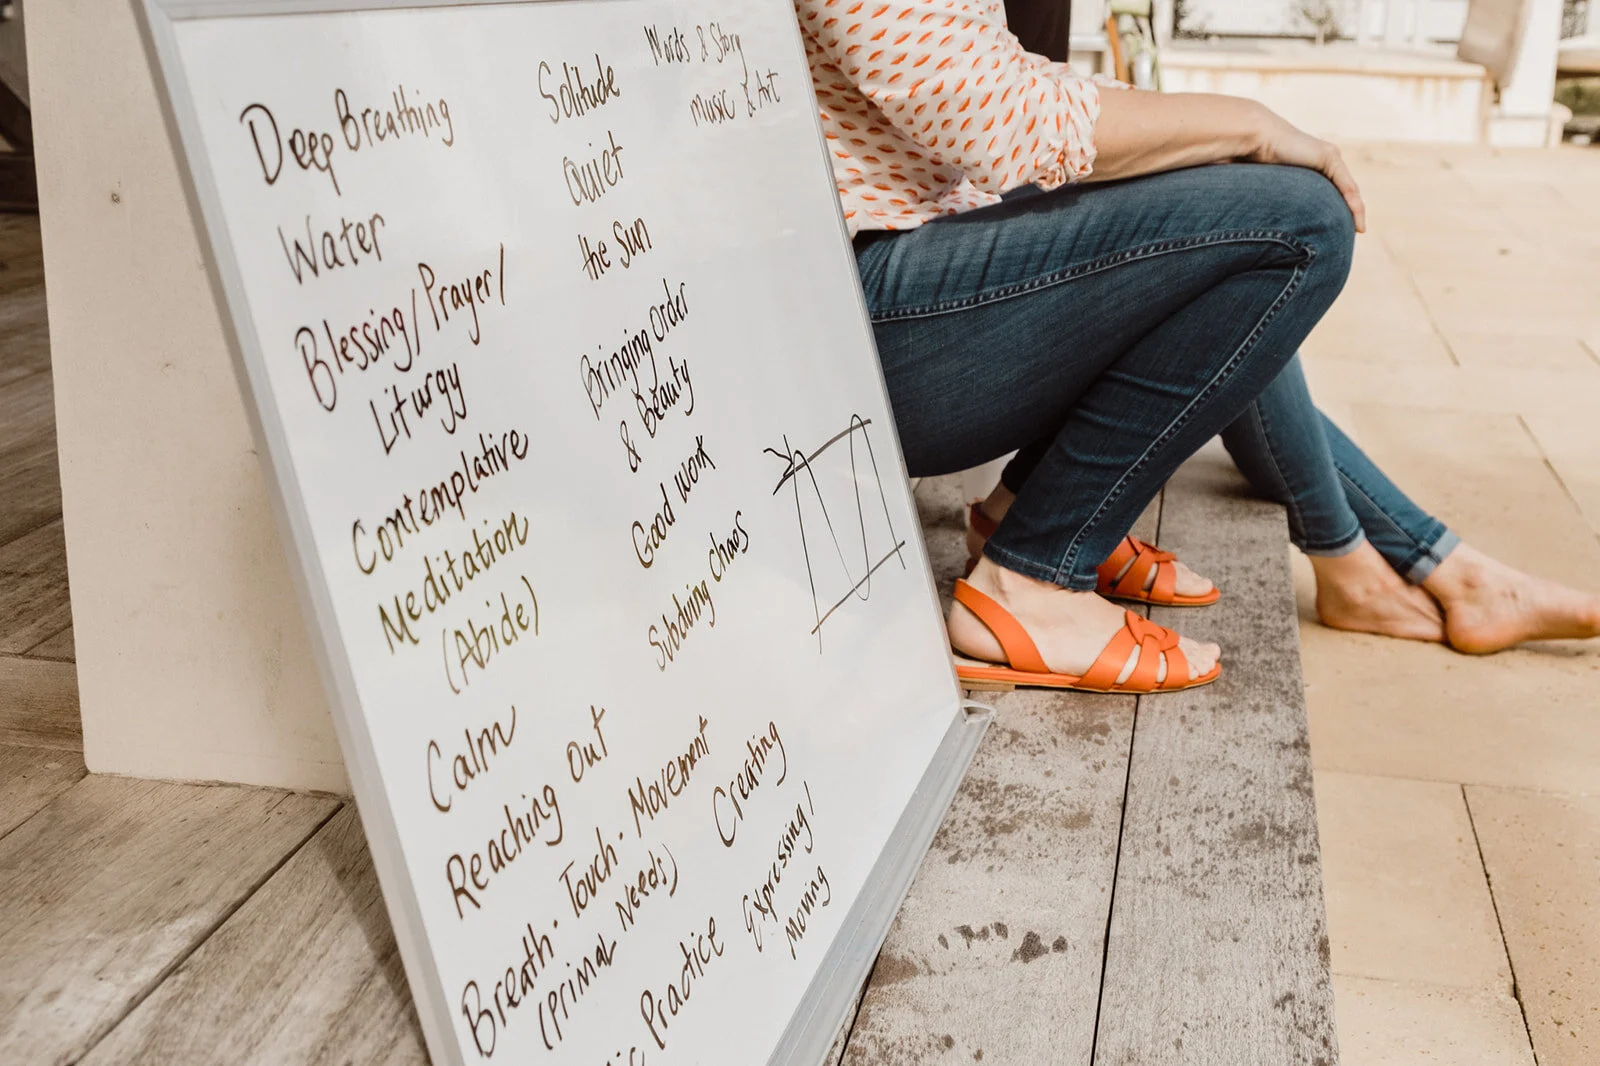 Deep Breathing
Water
Blessing/Prayer/
Liturgy
Contemplative
Meditation
(Abide)
Calm
Reaching Out
Breath · Touch · Movement
(Primal Needs)
Practice
Solitude
Quiet
the Sun
Bringing Order
& Beauty
Good Work
Subduing Chaos
Creating
Expressing/
Moving
Words & Story
Music & Art